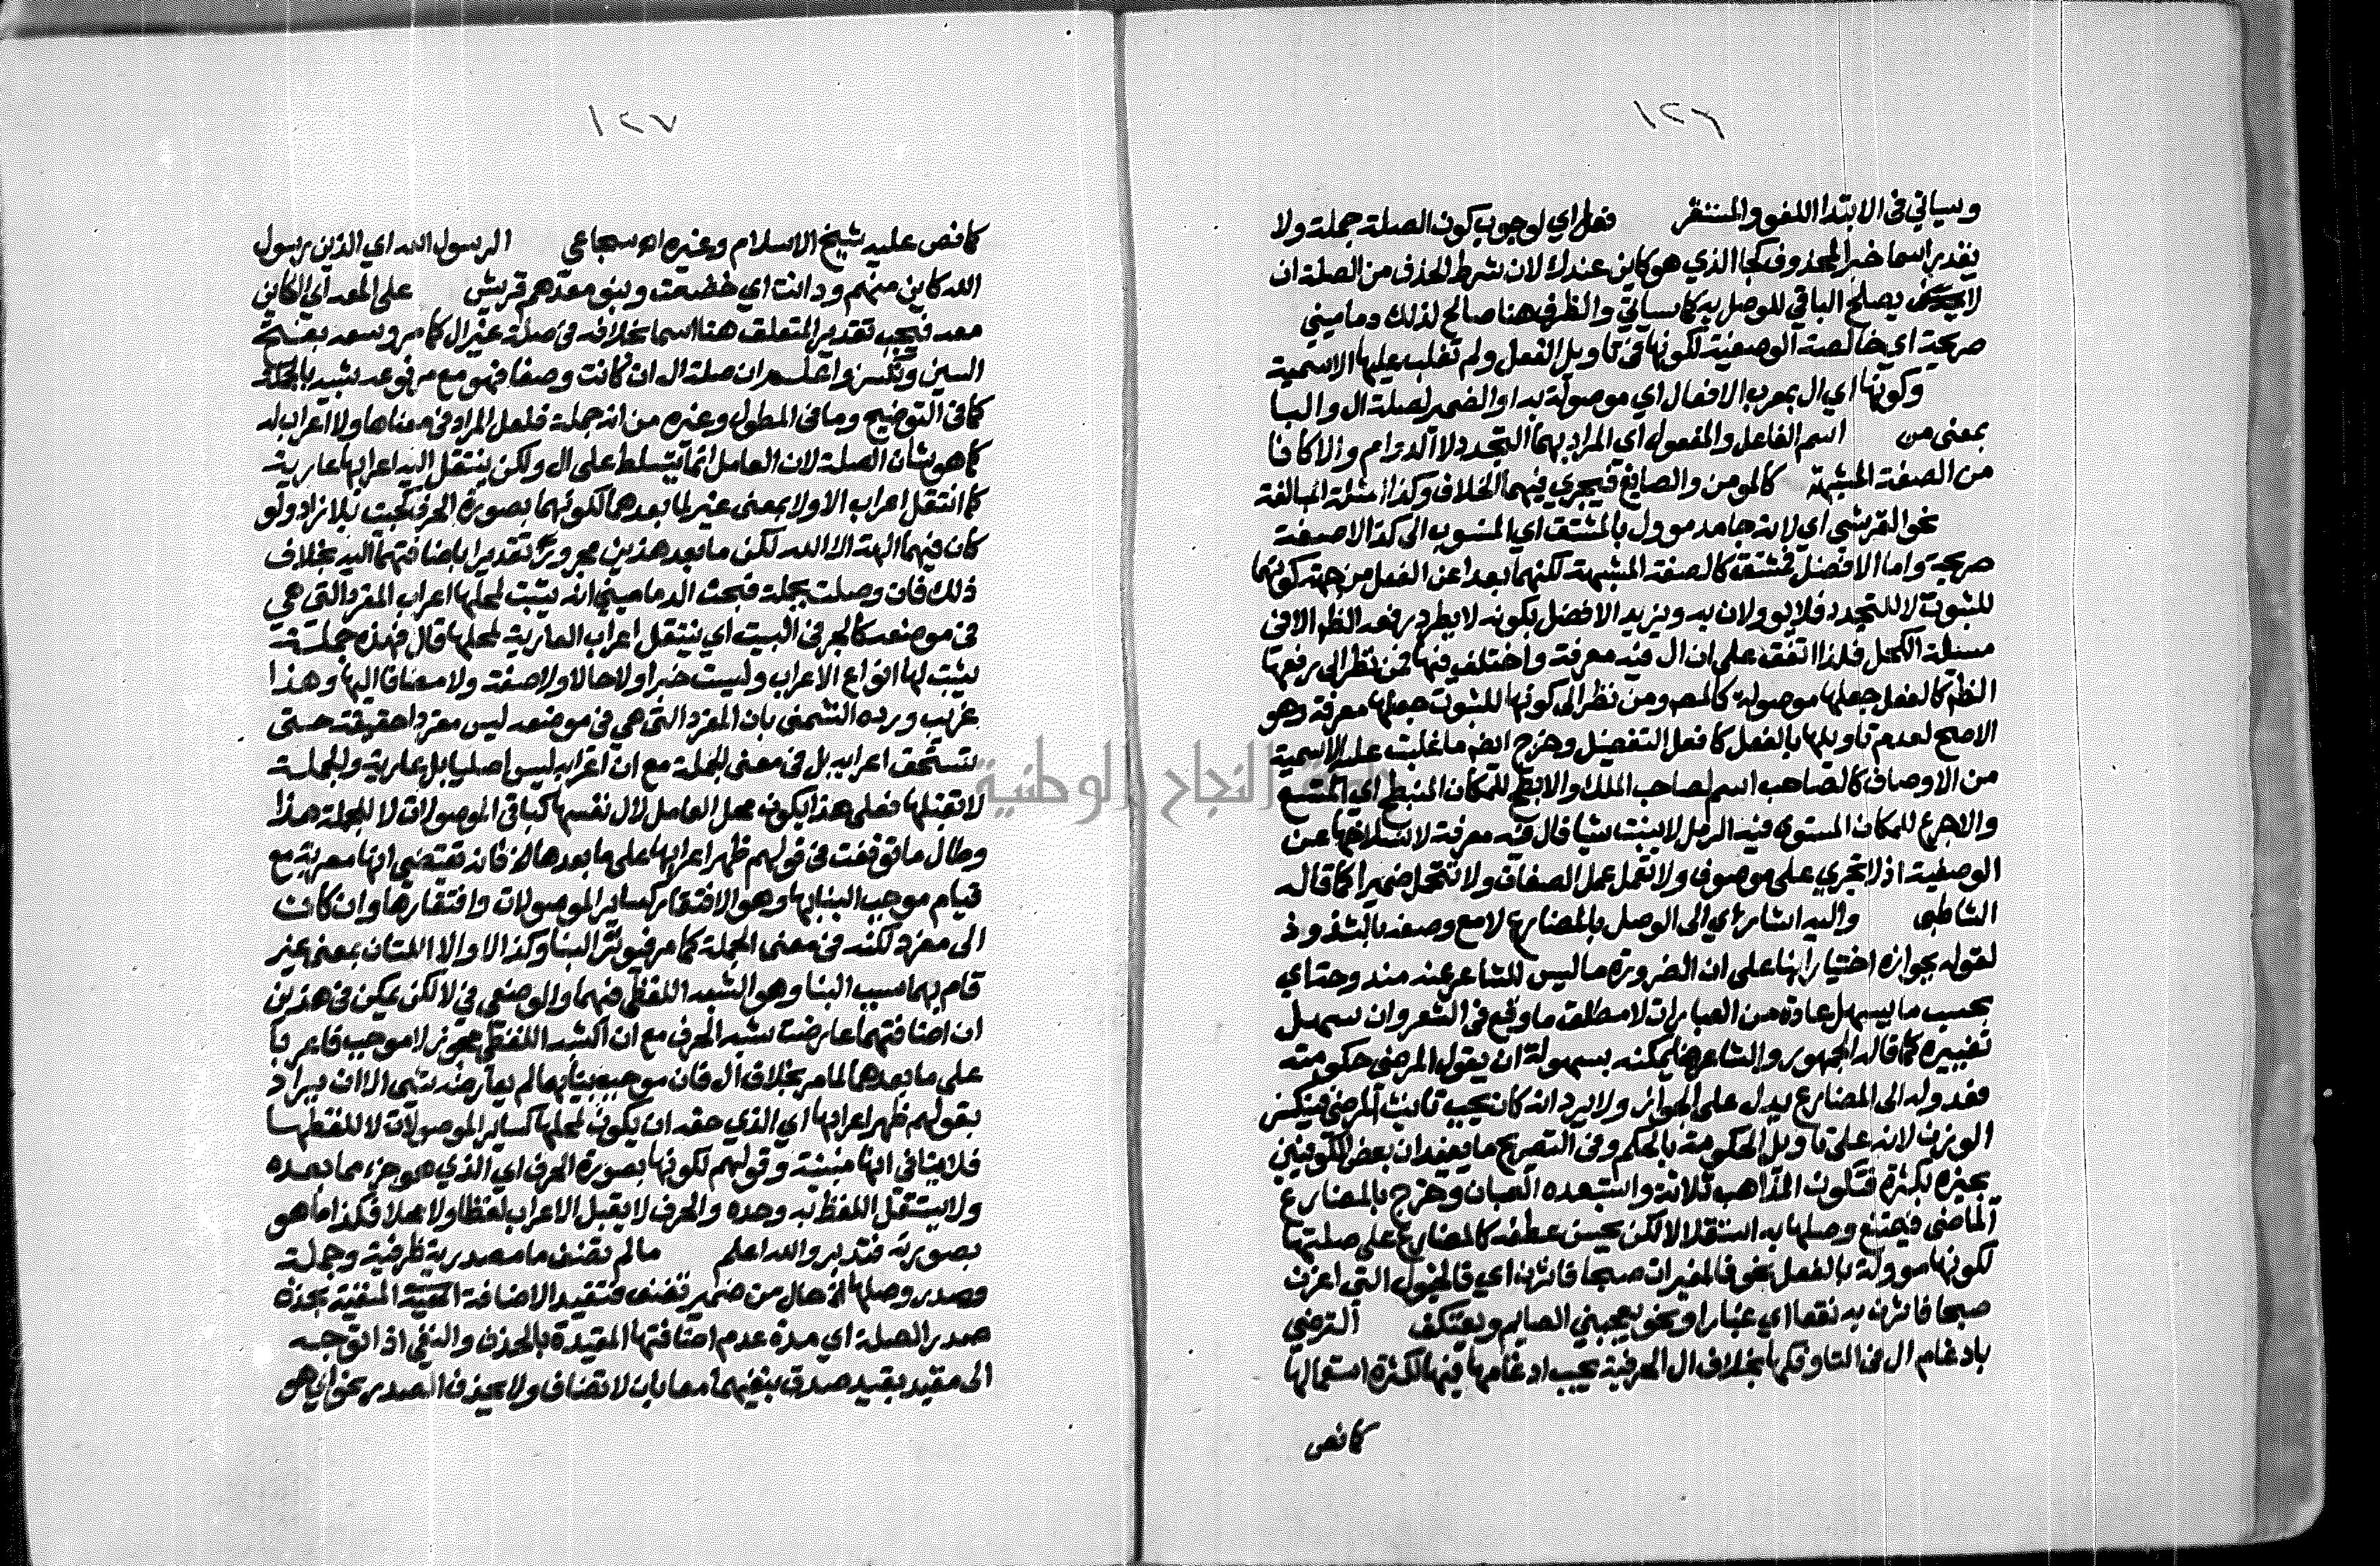 ١٢٦
وسياتي في الابتدا اللغو والمستقر فعل اي لوجوب كون الصلة جملة ولا
يقدر اسما خبر المحذوف كجا الذي هو كاين عندك لان شرط الحذف من الصلة ان
لا يصلح الباقي للوصل به كما سياتي والظرف هنا صالح لذلك دماميني
صريحة اي خالصة الوصفية لكونها في تاويل الفعل ولم تغلب عليها الاسمية
وكونها اي ال بمعرب الافعال اي موصولة به او الضمير لصلة ال والبا
بمعنى من اسم الفاعل والمفعول اي المراد بهما التجدد لا الدوام والا كانا
من الصفة المشبهة كالمومن والصايغ فيجري فيهما الخلاف وكذا امثلة المبالغة
نحو القرشي اي لانه جامد موول بالمشتق اي المنسوب الى كذا لا صفة
صريحة واما الافضل فمشتق كالصفة المشبهة لكنهما بعدا عن الفعل من جهة كونهما
للثبوت لا للتجدد فلا يوولان به ويزيد الافضل بكونه لا يطرد رفعه الظاهر الا في
مسئلة الكحل فلذا اتفق على ان ال فيه معرفة واختلف فيها فمن نظر الى رفعها
الظاهر كالفعل جعلها موصولة كالمصـ ومن نظر الى كونها للثبوت جعلها معرفة وهو
الاصح لعدم تاويلها بالفعل كافعل التفضيل وخرج ايضا ما غلبت عليه الاسمية
من الاوصاف كالصاحب اسم لصاحب الملك والابطح للمكان المنبطح اي المتسع
والاجرع للمكان المستوي فيه الرمل لا ينبت شيا فال فيه معرفة لانسلاخها عن
الوصفية اذ لا تجري على موصوف ولا تعمل عمل الصفات ولا تتحمل ضميرا كما قاله
الشاطبي واليه اشار اي الى الوصل بالمضارع لا مع وصفه بالشذوذ
لقوله بجوازه اختيارا بنا على ان الضرورة ما ليس للشاعر عنه مندوحة اي
بحسب ما يسهل عادة من العبارات لا مطلق ما وقع في الشعر وان سهل
تغييره كما قاله الجمهور والشاعر هنا يمكنه بسهولة ان يقول المرضي حكومته
فعدوله الى المضارع يدل على الجواز ولا يرد انه كان يجب تانيث المرضي فينكسر
الوزن لانه على تاويل الحكومة بالحكم وفي التصريح ما يفيد ان بعض الكوفيين
يجيزه بكثرة فتكون المذاهب ثلاثة واستبعده الصبان وخرج بالمضارع
الماضي فيمتنع وصلها به استقلالا لكن يحسن عطفه كالمضارع على صلتها
لكونها موولة بالفعل نحو فالمغيرات صبحا فاثرن اي فالخيول التي اغرن
صبحا فاثرن به نقعا اي غبارا ونحو يعجبني الصايم ويعتكف الترضي
بادغام ال في التا وفكها بخلاف ال الحرفية يجب ادغامها فيها لكثرة استعمالها
كما نص
١٢٧
كما نص عليه شيخ الاسلام وغيره اه سجاعي الرسول الله اي الذين رسول
الله كاين منهم ودانت اي خضعت وبنو معد هم قريش على المعه اي الكاين
معه فيجب تقدير المتعلق هنا اسما بخلافه في صلة غير ال كما مر وسعه بفتح
السين وتكسر واعلم ان صلة ال ان كانت وصفا فهو مع مرفوعه شبيه بالجملة
كما في التوضيح وما في المطول وغيره من انه جملة فلعل المراد في معناها ولا اعراب له
كما هو شان الصلة لان العامل انما يتسلط على ال ولكن ينتقل اليه اعرابها عارية
كما انتقل اعراب الا ولا بمعنى غير لما بعدهما لكونهما بصورة الحرف كجيت بلا زاد ولو
كان فيهما الهة الا الله لكن ما بعد هذين مجرور تقديرا باضافتهما اليه بخلاف
ذلك فان وصلت بجملة فبحث الدماميني انه يثبت لمحلها اعراب المفرد التي هي
في موضعه كالجر في البيت اي ينتقل اعراب العارية لمحلها قال فهذه جملة
يثبت لها انواع الاعراب وليست خبرا ولا حالا ولا صفة ولا مضافا اليها وهذا
غريب ورده الشمني بان المفرد التي هي في موضعه ليس مفردا حقيقة حتى
تستحق اعرابه بل في معنى الجملة مع ان اعرابه ليس اصليا بل عارية والجملة
لا تقبلها فعلى هذا يكون محل العامل لال نفسها كباقي الموصولات لا للجملة هذا
وطال ما توقفت في قولهم ظهر اعرابها على ما بعدها الخ فانه تقتضي انها معربة مع
قيام موجب البنا بها وهو الافتقار كساير الموصولات وافتقارها وان كان
الى مفرد لكنه في معنى الجملة كما مر فيوثر البنا وكذا لا والا اللتان بمعنى غير
قام بهما سبب البنا وهو الشبه اللفظي فيهما والوضعي في لا لكن يمكن في هذين
ان اضافتهما عارضت شبه الحرف مع ان الشبه اللفظي مجوز لا موجب فاعربا
على ما بعدهما لما مر بخلاف ال فان موجب بنايها لم يعارضه شي الا ان يراد
بقولهم ظهر اعرابها اي الذي حقه ان يكون لمحلها كساير الموصولات لا للفظها
فلا ينافي انها مبنية وقولهم لكونها بصورة الحرف اي الذي هو جزء مما بعده
ولا يستقل اللفظ به وحده والحرف لا يقبل الاعراب لفظا ولا محلا فكذا ما هو
بصورته فتدبر والله اعلم ما لم تضف ما مصدرية ظرفية وجملة
وصدر وصلها الخ حال من ضمير تضف فتقيد الاضافة المنفية بحذف
صدر الصلة اي مدة عدم اضافتها المقيدة بالحذف والنفي اذا توجه
الى مقيد بقيد صدق بنفيهما معا بان لا تضاف ولا يحذف الصدر نحو اي هو